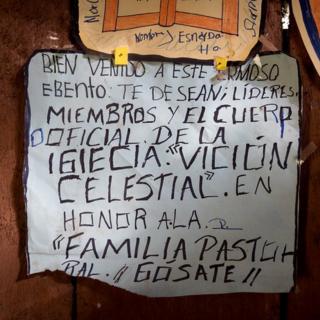 Nombre y Esnerda
BIEN VENIDO A ESTE ERMOSO
EBENTO: TE DE SEAN; LÍDERES..
MIEMBROS Y EL CUERPO
OFICIAL. DE LA
IGLECIA: "VICIÓN
CELESTIAL". EN
HONOR A LA.
"FAMILIA PASTOR
RAL. // GÓSATE //